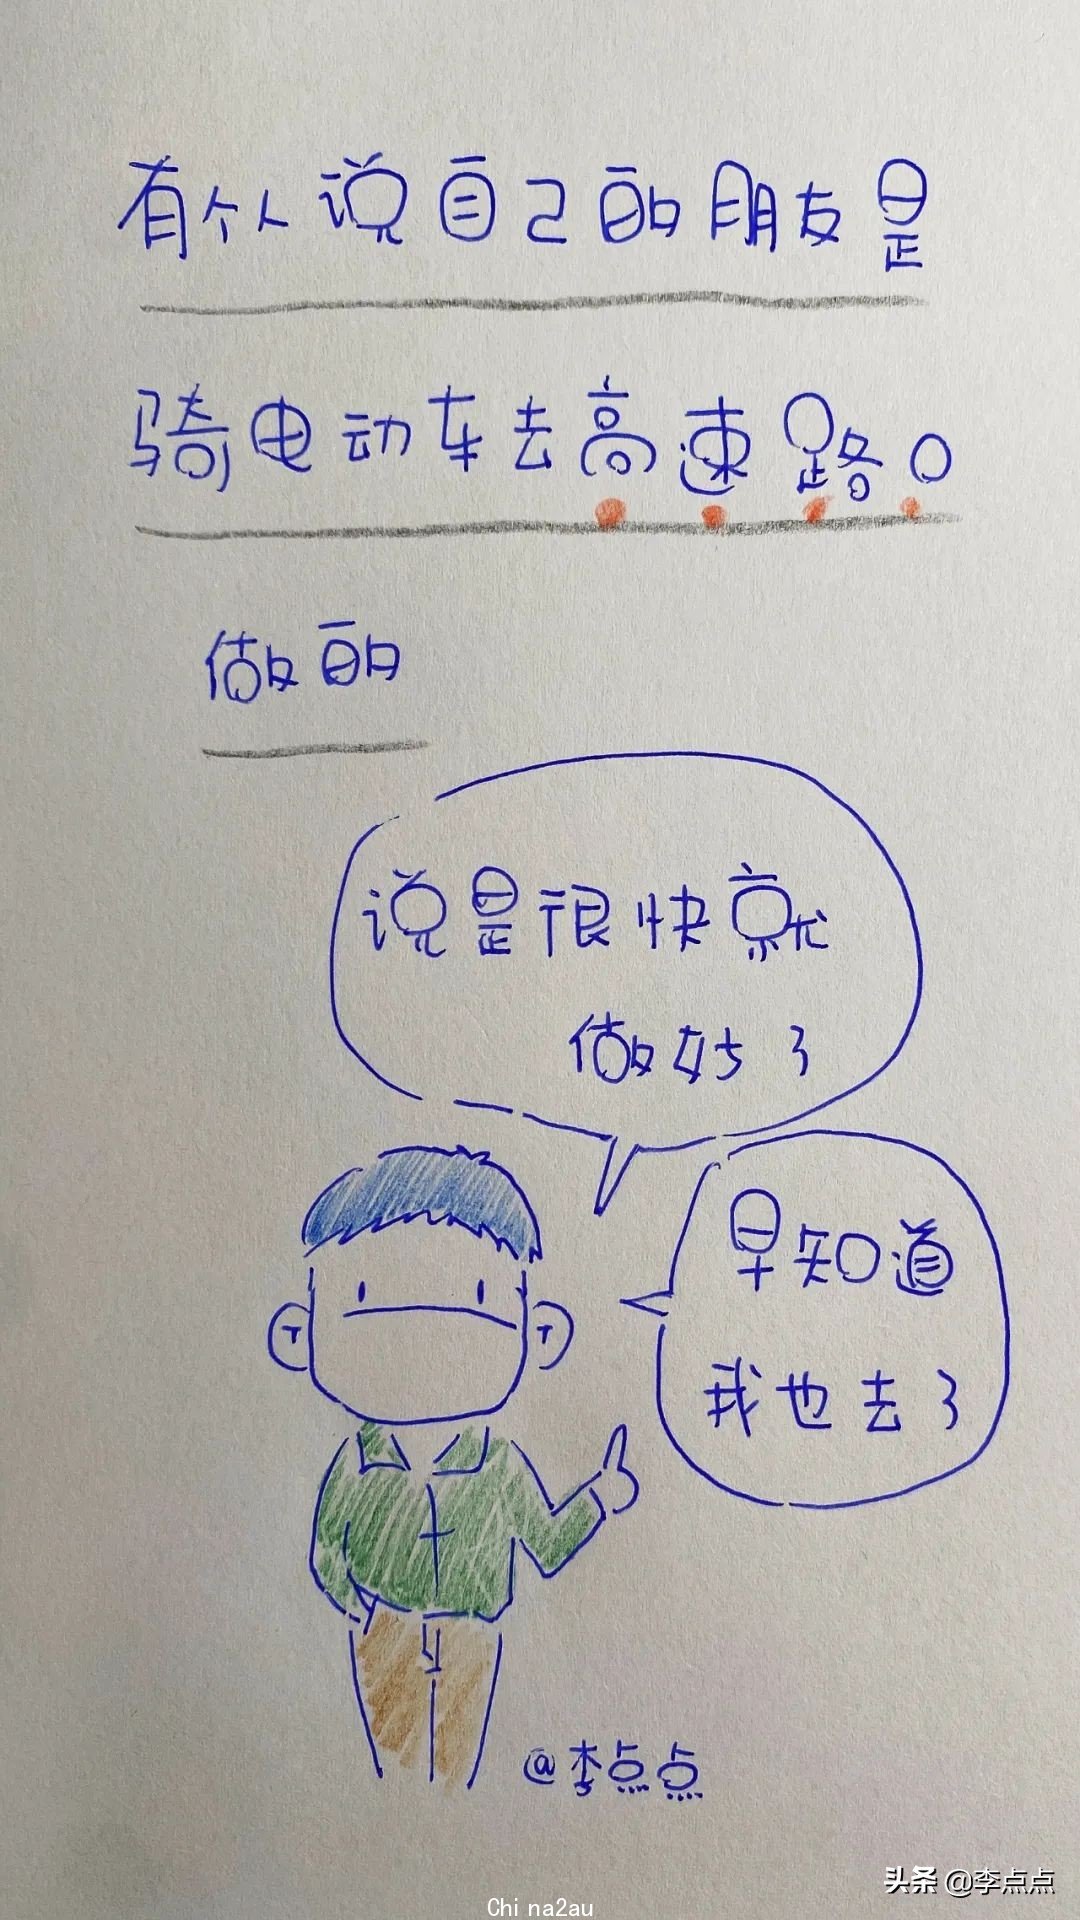 有个人说自己的朋友是
骑电动车去高速路口
做的
说是很快就
做好了
早知道
我也去了
@李点点
头条 @李点点
China2au